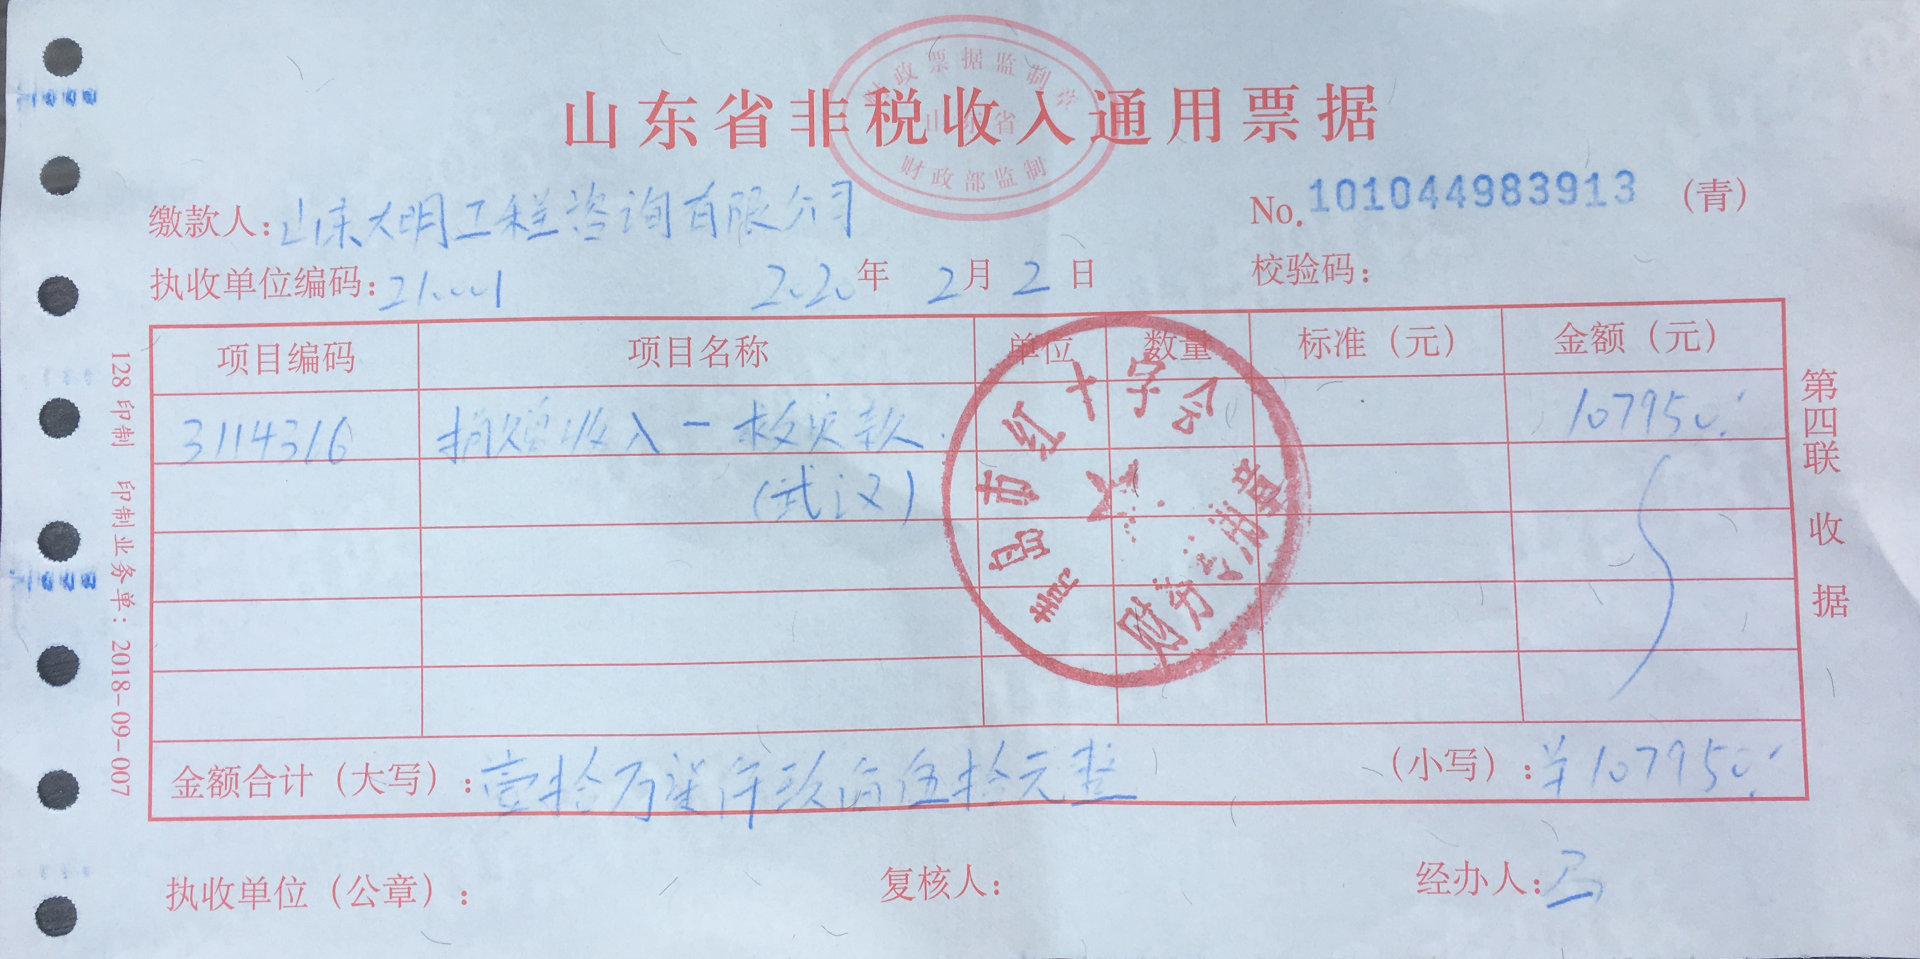 财政票据监制章
山东省
财政部监制
山东省非税收入通用票据
缴款人：山东大明工程咨询有限公司
No. 101044983913 （青）
执收单位编码：21001 2020年 2月 2日 校验码：
项目编码 项目名称 单位 数量 标准（元） 金额（元）
3114316 捐赠收入－救灾款 107950
（武汉）
青岛市红十字会
财务专用章
金额合计（大写）：壹拾万柒仟玖佰伍拾元整 （小写）：￥107950
执收单位（公章）： 复核人： 经办人：
第四联 收据
128 印制 印制业务单：2018-09-007